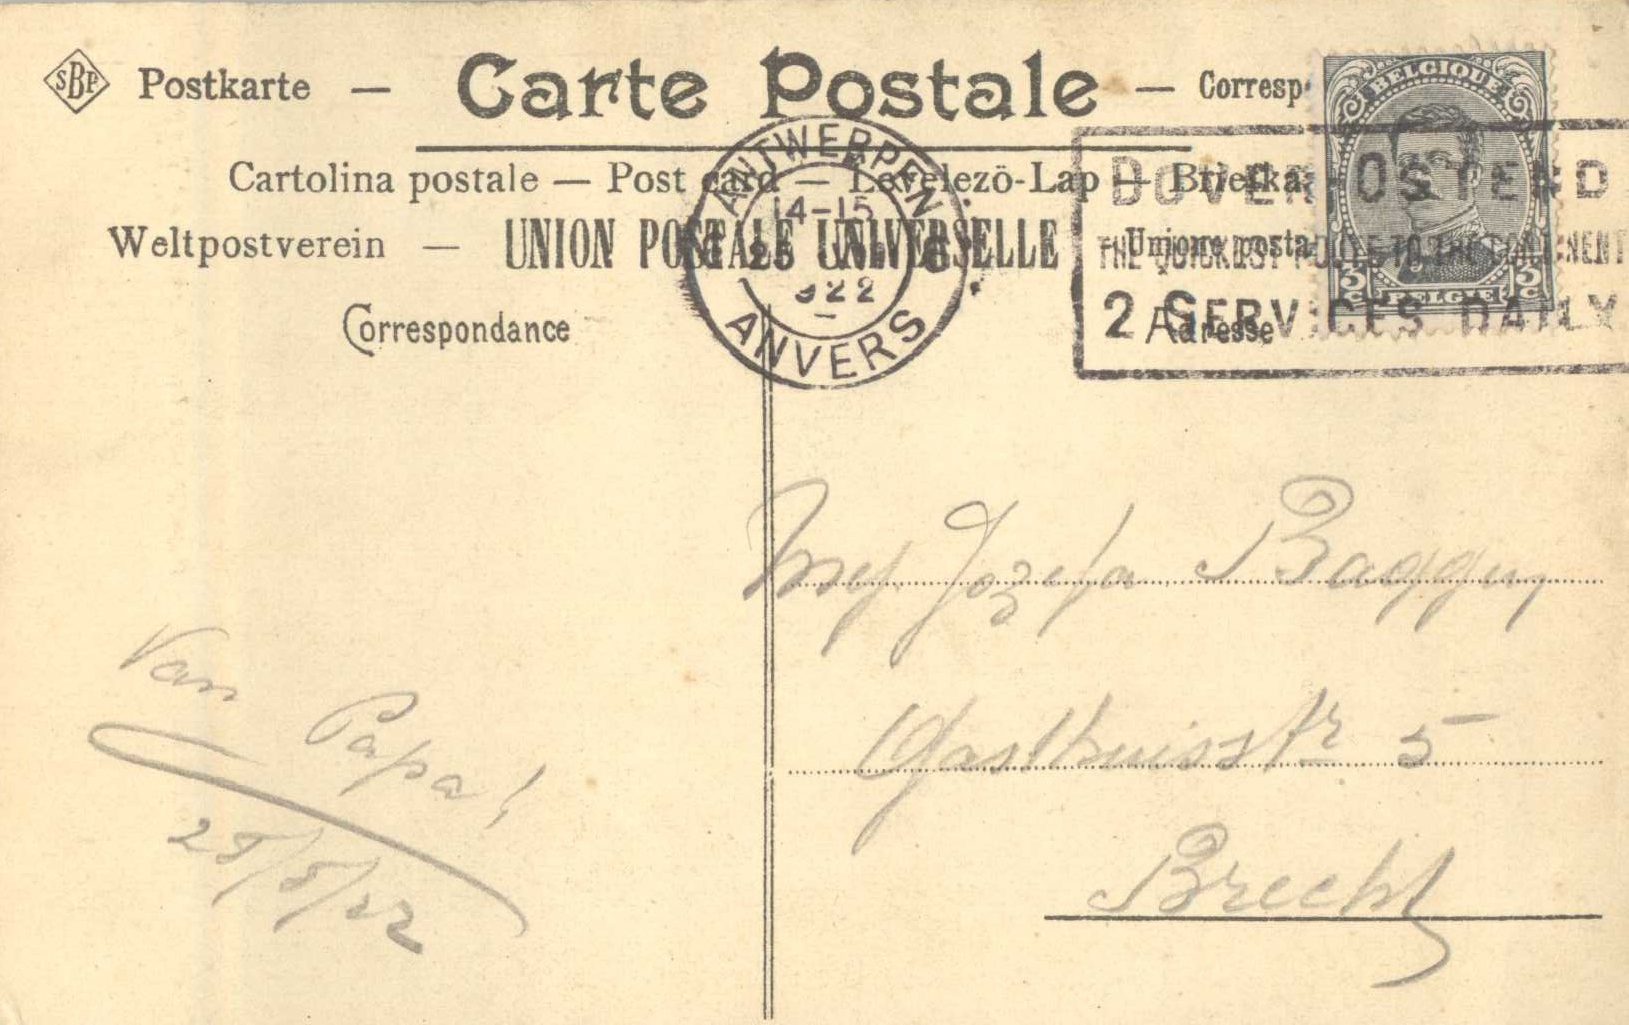 SBP Postkarte — Carte Postale — Corresp
Cartolina postale — Post card — Levelezö-Lap — Briefka
Weltpostverein — UNION POSTALE UNIVERSELLE — Unione posta
Correspondance
Adresse
BELGIQUE
3 C BELGIË 3 C
ANTWERPEN
14-15
25
922
ANVERS
DOVER OSTEND
THE QUICKEST ROUTE TO THE CONTINENT
2 SERVICES DAILY
Mej. Jozefa
Gasthuisstr 5
Brecht
Van Papa!
25/5/22